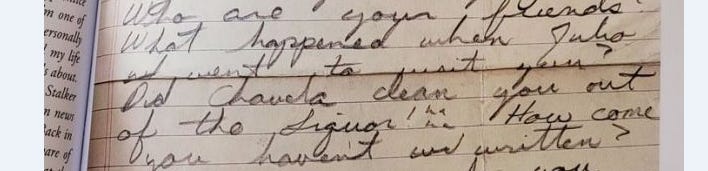 m one of
ersonally
my life
s about.
Stalker
n news
Back in
are of
Who are your friends
What happened when Julio
went to visit you?
Did Chavela clean you out
of the Liquor! ha ha How come
you haven't written?
you